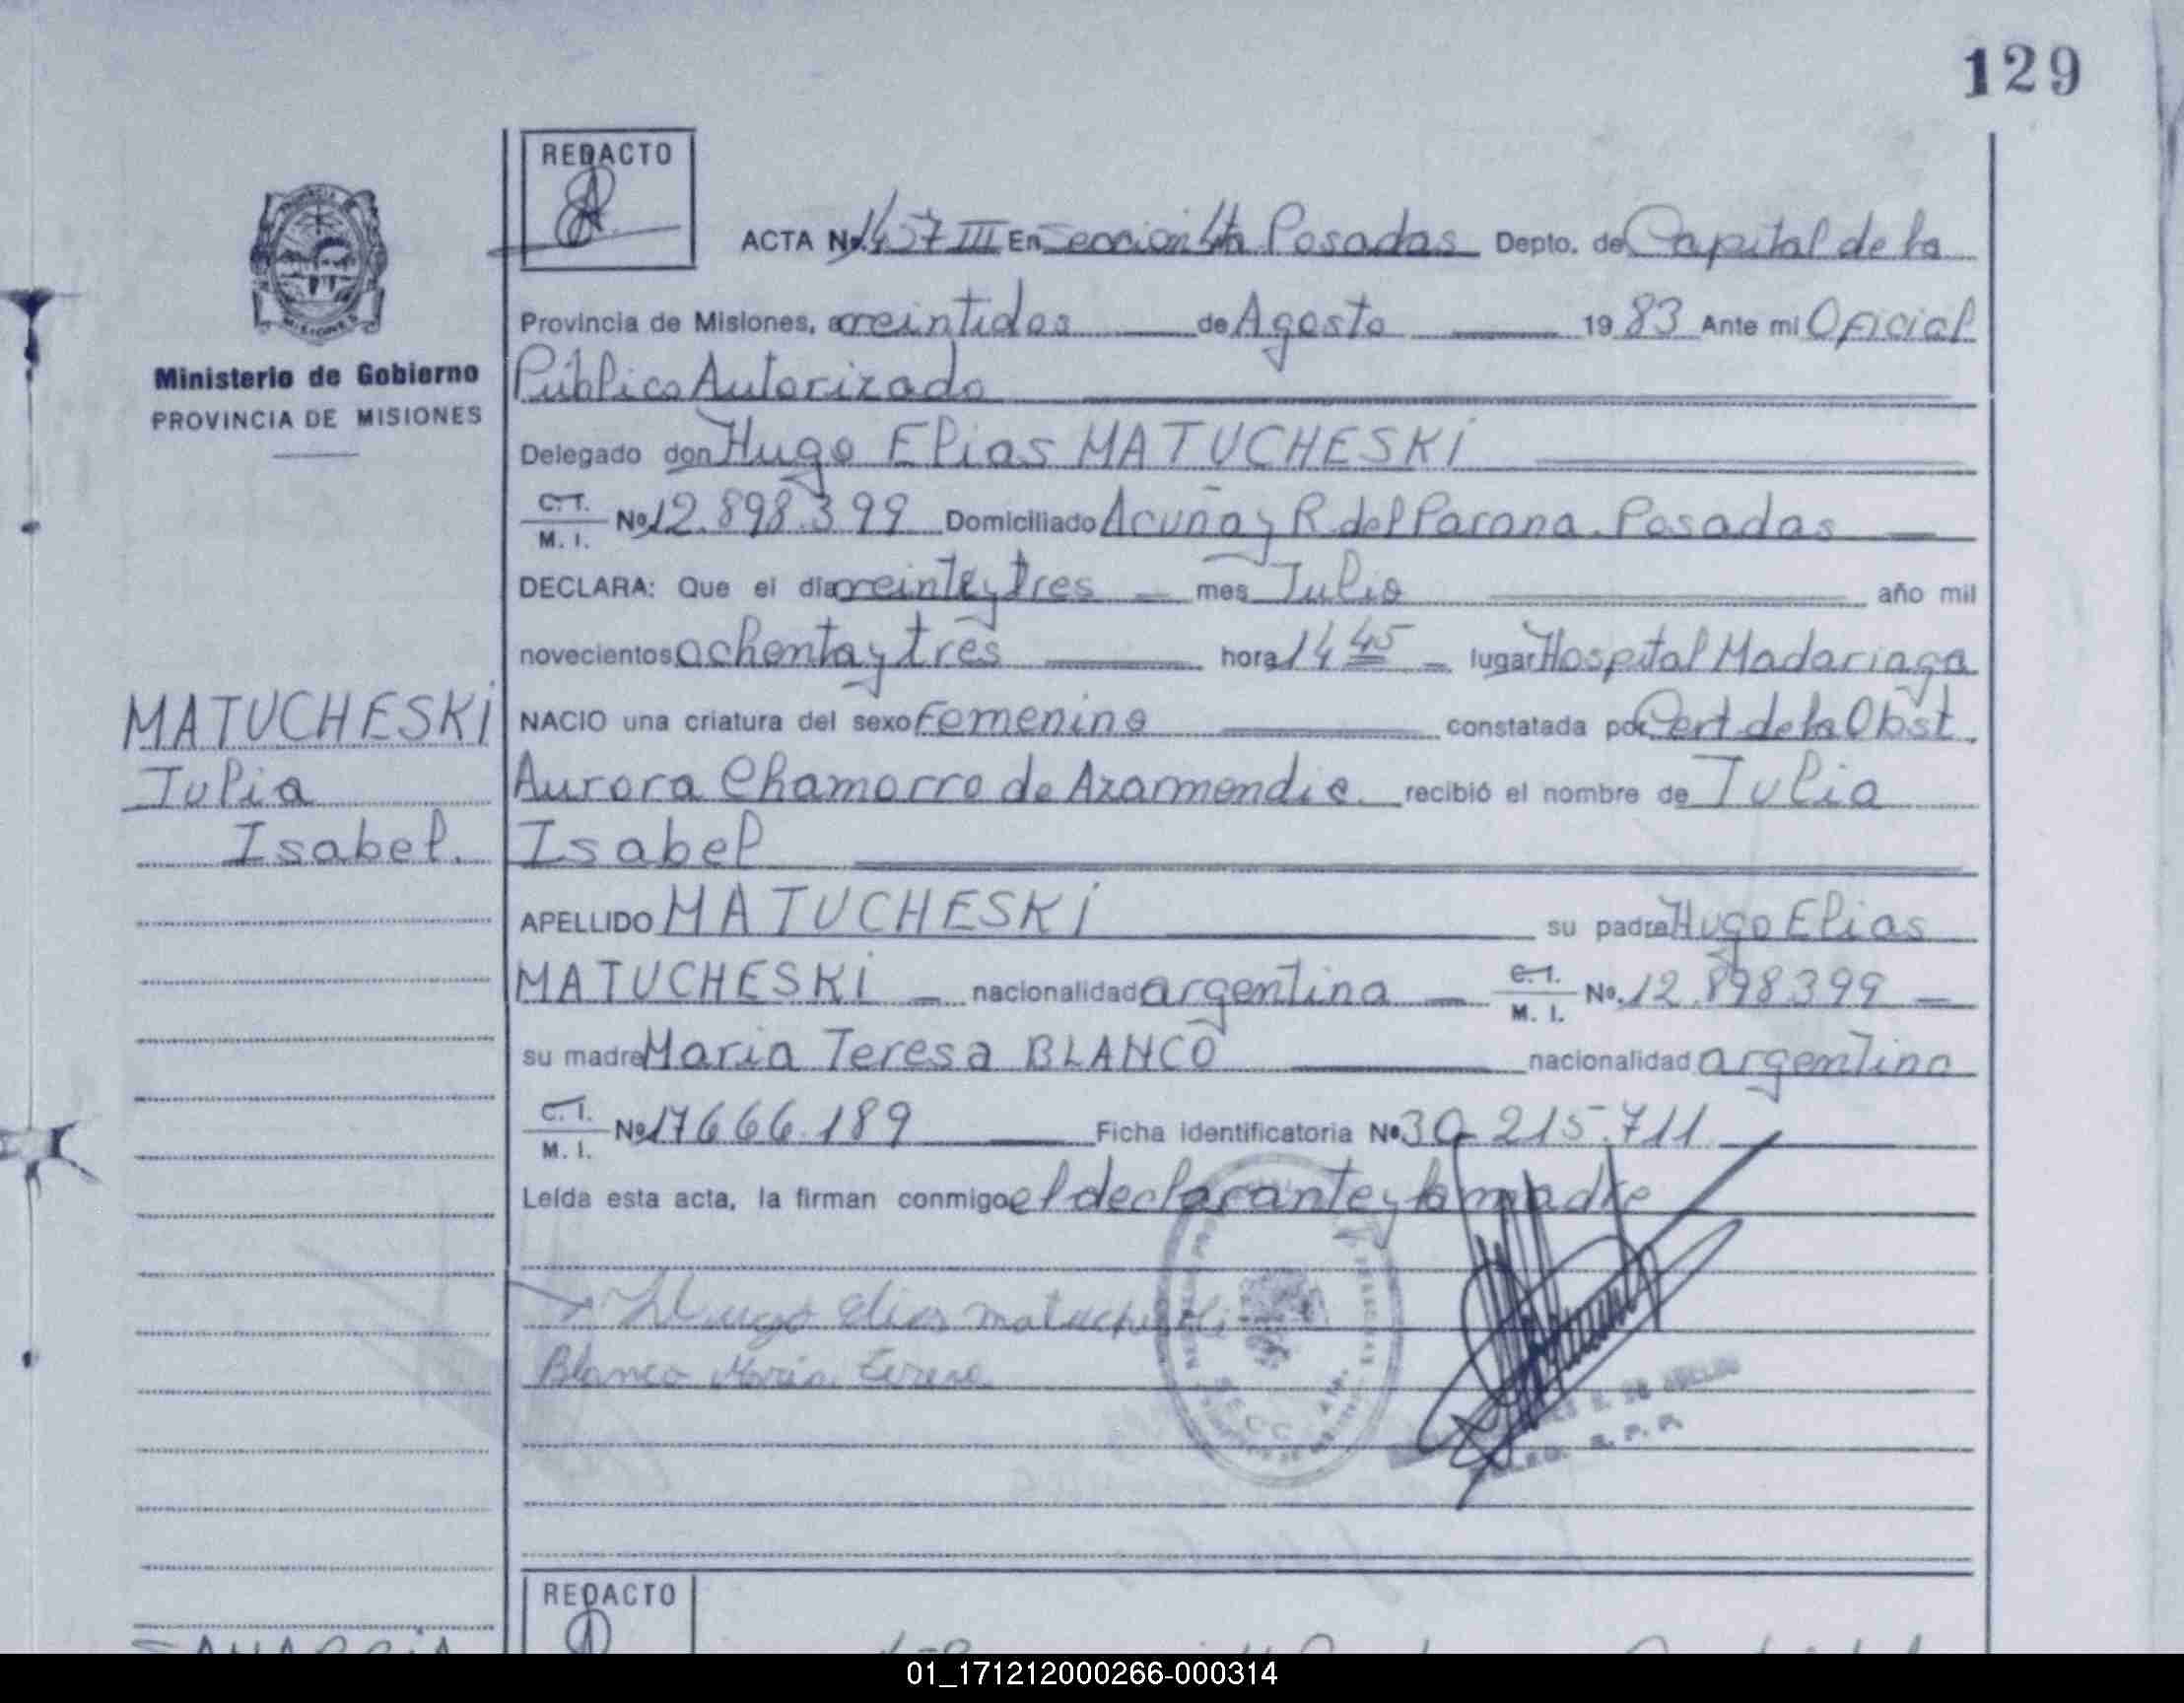 129
REDACTO
ACTA No. 1457 III En Sección 4ta Posadas Depto. de Capital de la
Provincia de Misiones, a veintidos de Agosto 1983 Ante mi Oficial
Público Autorizado
Ministerio de Gobierno
PROVINCIA DE MISIONES
Delegado don Hugo Elias MATUCHESKI
C. I. M. I. No 12.898.399 Domiciliado Acuña y R. del Parana. Posadas
DECLARA: Que el día veinte y tres mes Julio año mil
novecientos ochenta y tres hora 14 45 lugar Hospital Madariaga
MATUCHESKI
Julia
Isabel.
NACIO una criatura del sexo Femenino constatada por Cert de la Obst.
Aurora Chamorro de recibió el nombre de Julia
Isabel
APELLIDO MATUCHESKI su padre Hugo Elias
MATUCHESKI nacionalidad argentina C. I. M. I. No. 12.898399
su madre Maria Teresa BLANCO nacionalidad argentina
C. I. M. I. No 17666.189 Ficha identificatoria No 30.215.711
Leída esta acta, la firman conmigo el declarante y la madre
Hugo elias matucheski
Blanco María Teresa
SECC. 4ta.
REDACTO
01_171212000266-000314